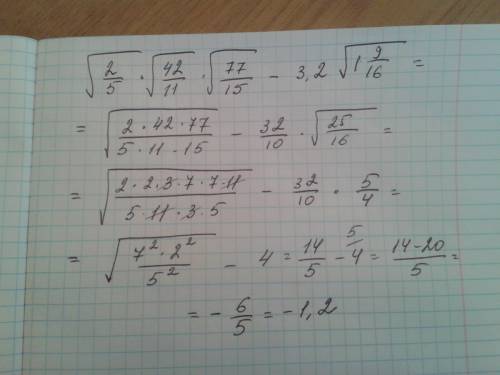 √(2/5) · √(42/11) · √(77/15) − 3,2 √(1 9/16) =
= √((2 · 42 · 77)/(5 · 11 · 15)) − 32/10 · √(25/16) =
= √((2 · 2 · 3 · 7 · 7 · 11)/(5 · 11 · 3 · 5)) − 32/10 · 5/4 =
= √((7² · 2²)/5²) − 4 = 14/5 − 4 /5 = (14 − 20)/5 =
= − 6/5 = − 1,2